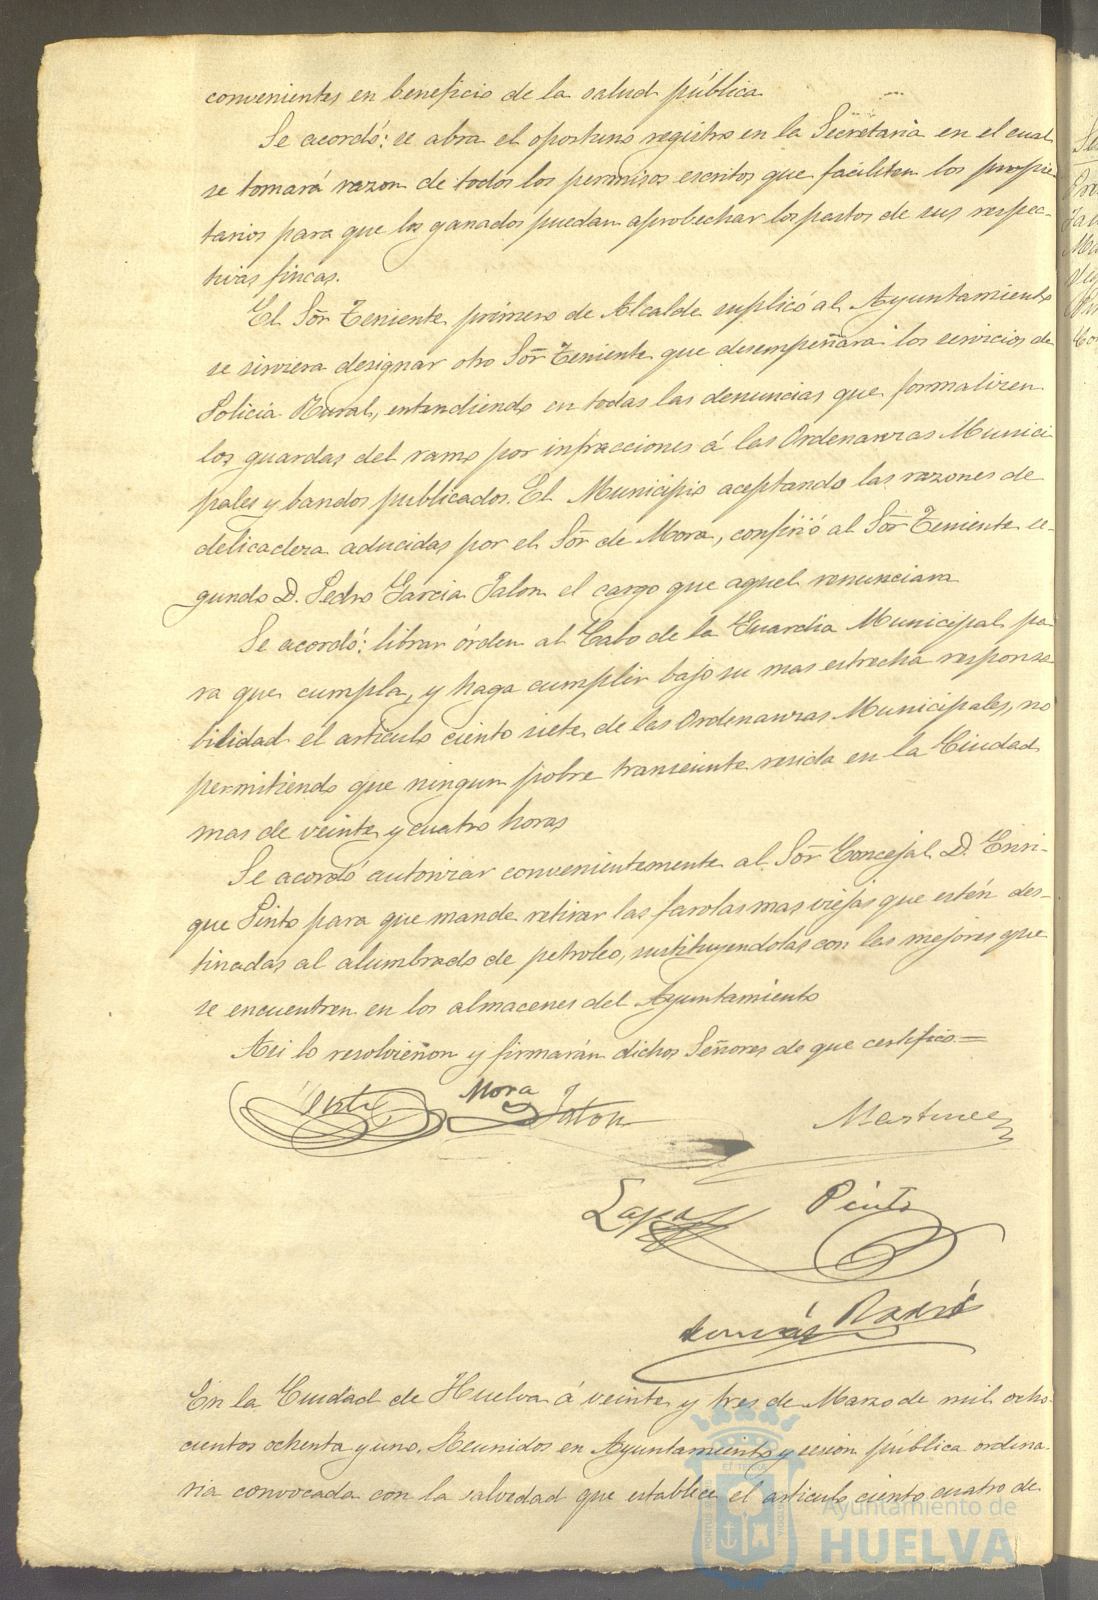 convenientes en beneficio de la salud pública
Se acordó: se abra el oportuno registro en la Secretaria en el cual
se tomará razon de todos los permisos escritos que faciliten los propie
tarios para que los ganados puedan aprobechar los pastos de sus respec-
tivas fincas.
El Sõr Teniente primero de Alcalde suplicó al Ayuntamiento
se sirviera designar otro Sõr Teniente que desempeñara los servicios de
Policia Rural, entendiendo en todas las denuncias que formalizen
los guardas del ramo por infracciones á las Ordenanzas Munici
pales y bandos publicados. El Municipio aceptando las razones de
delicadeza aducidas por el Sõr de Mora, confirió al Sõr Teniente se-
gundo D. Pedro Garcia Jalon el cargo que aquel renunciara
Se acordó: librar órden al Cabo de la Guardia Municipal pa
ra que cumpla, y haga cumplir bajo su mas estrecha responsa
bilidad el articulo ciento siete de las Ordenanzas Municipales, no
permitiendo que ningun pobre transeunte resida en la Ciudad
mas de veinte y cuatro horas
Se acordó autorizar convenientemente al Sõr Concejal D. Enri-
que Pinto para que mande retirar las farolas mas viejas que estén des-
tinadas al alumbrado de petroleo, sustituyendolas con las mejores que
se encuentren en los almacenes del Ayuntamiento
Asi lo resolvieron y firmarán dichos Señores de que certifico=
Mora Jalon Martinez
Pinto
En la Ciudad de Huelva á veinte y tres de Marzo de mil ocho
cientos ochenta y uno. Reunidos en Ayuntamiento y sesion publica ordina
ria convocada con la salvedad que establece el articulo ciento cuatro de
Ayuntamiento de
HUELVA